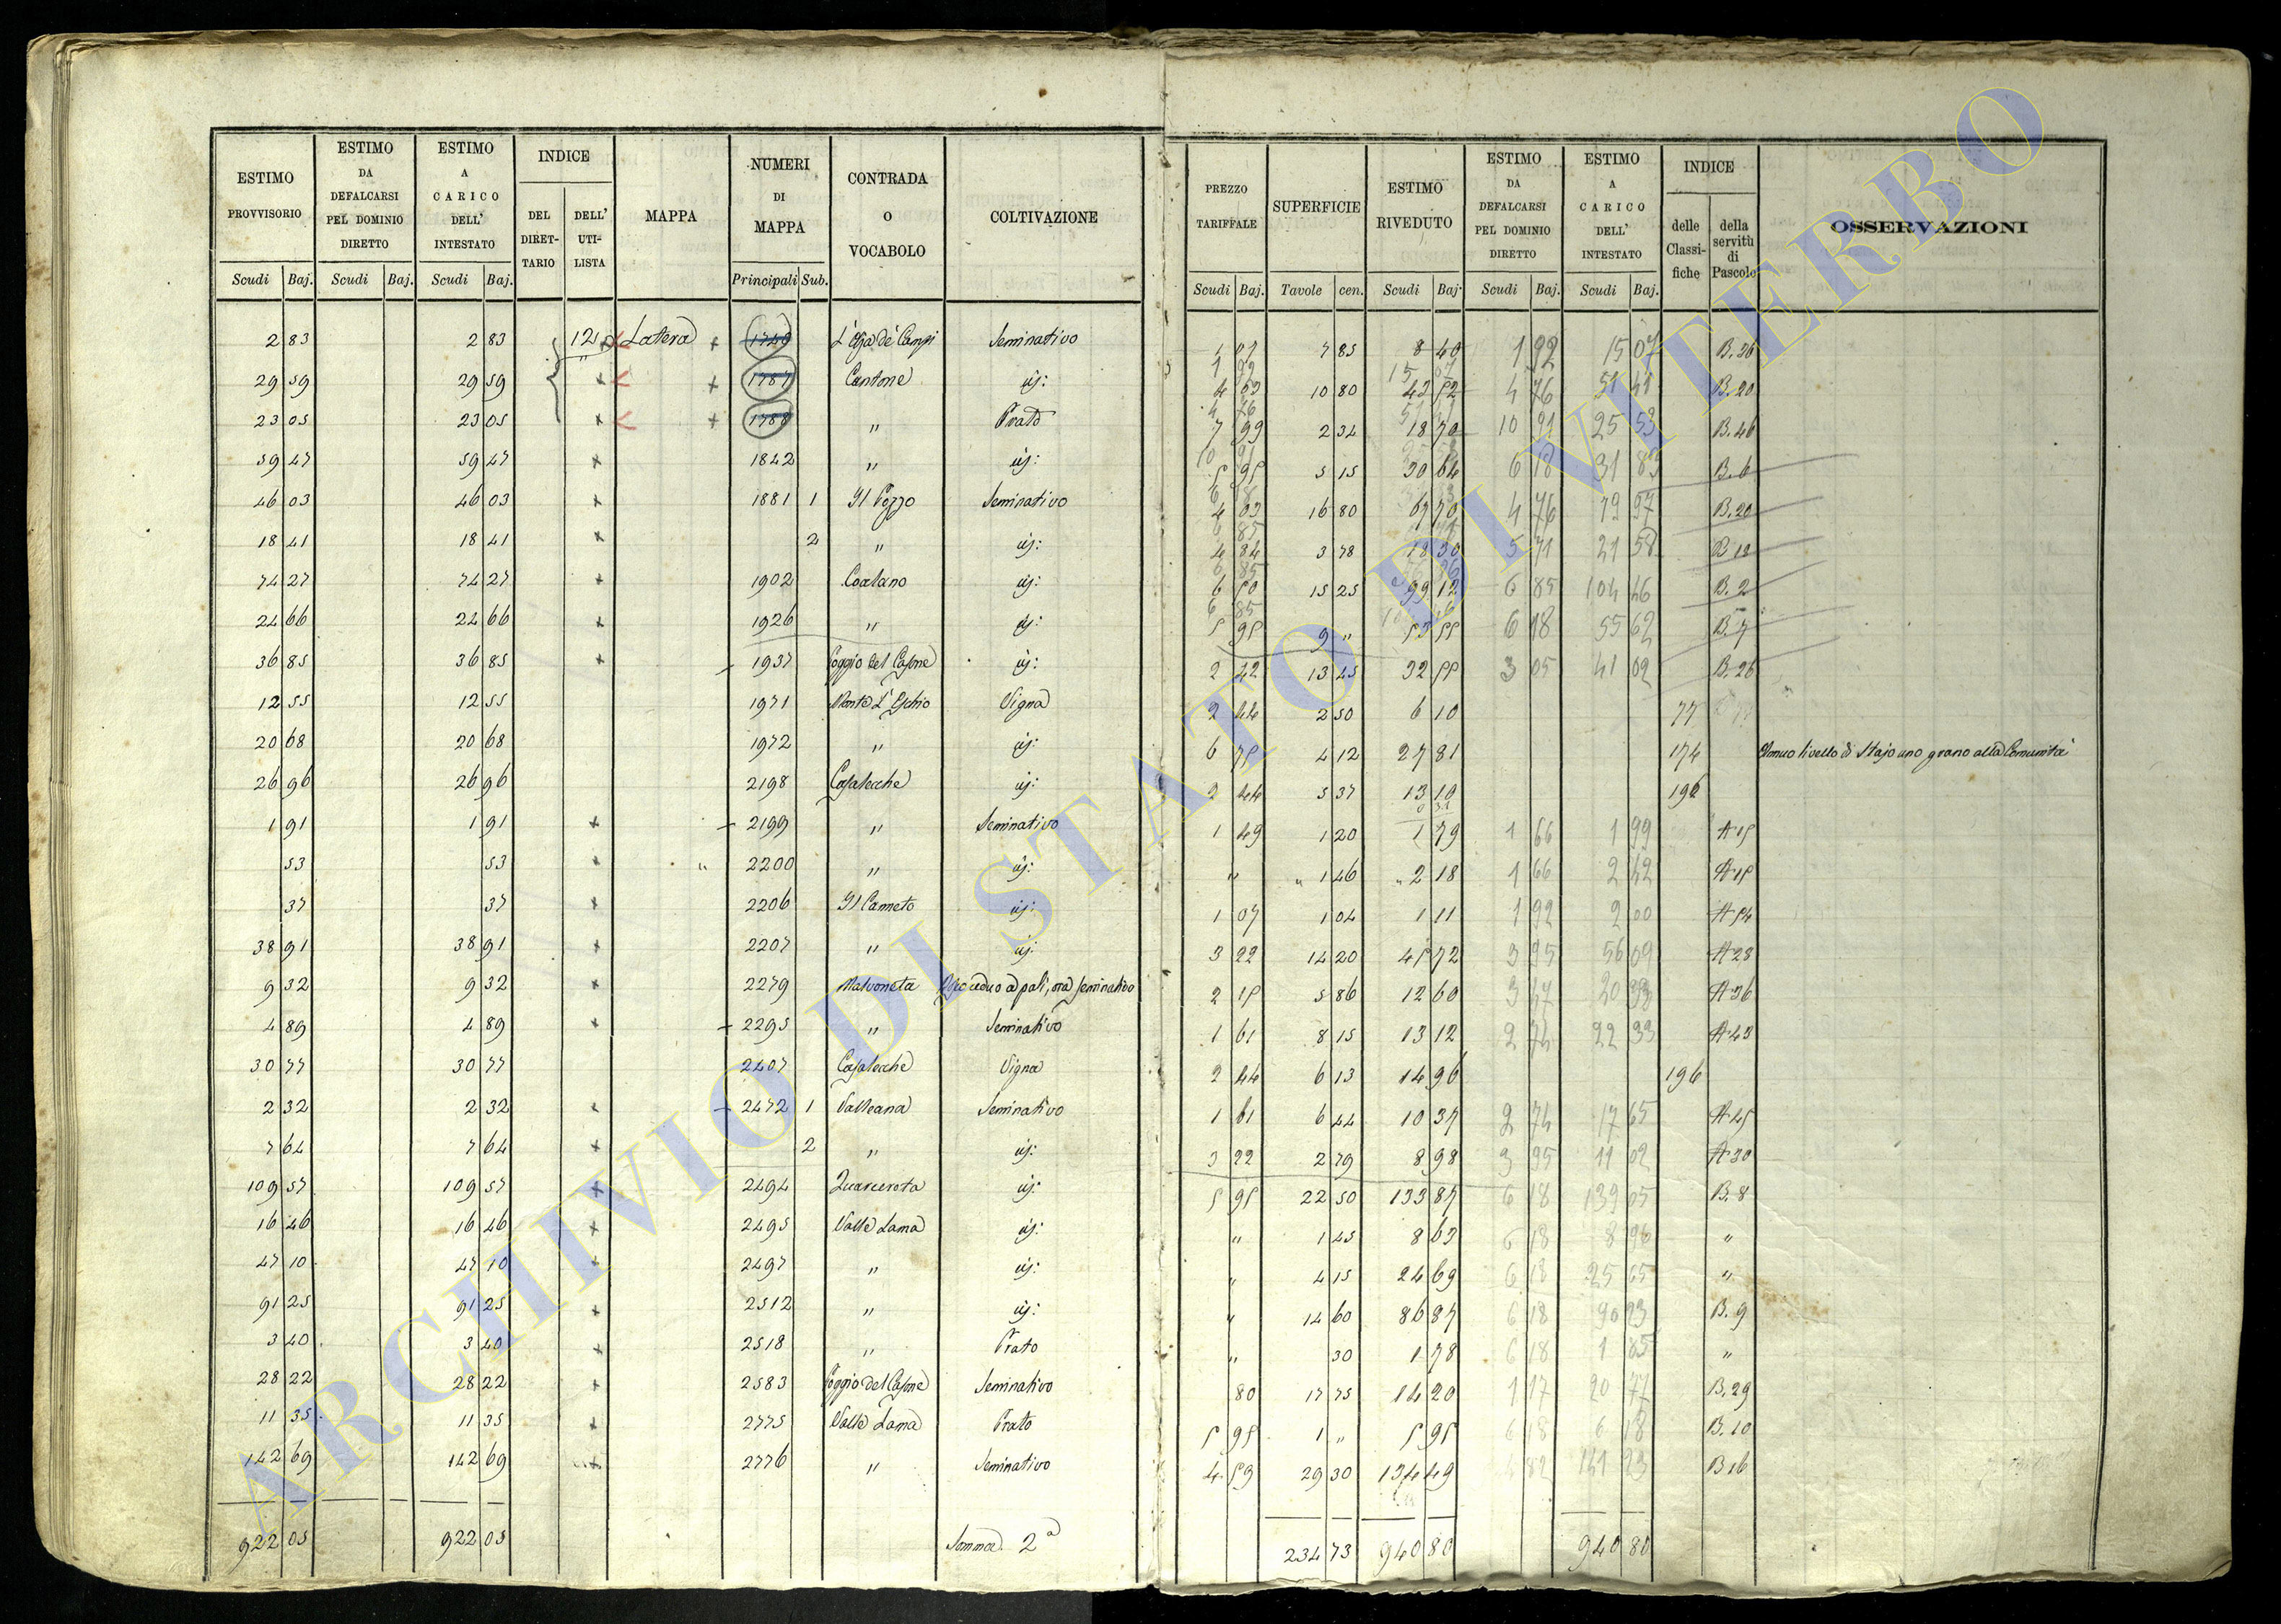 ESTIMO PROVVISORIO | ESTIMO DA DEFALCARSI PEL DOMINIO DIRETTO | ESTIMO A CARICO DELL' INTESTATO | INDICE | MAPPA | NUMERI DI MAPPA | CONTRADA O VOCABOLO | COLTIVAZIONE | PREZZO TARIFFALE | SUPERFICIE | ESTIMO RIVEDUTO | ESTIMO DA DEFALCARSI PEL DOMINIO DIRETTO | ESTIMO A CARICO DELL' INTESTATO | INDICE | OSSERVAZIONI
DEL DIRETTARIO | DELL' UTILISTA | delle Classifiche | della servitù di Pascolo
Scudi | Baj. | Scudi | Baj. | Scudi | Baj. | Principali | Sub. | Scudi | Baj. | Tavole | cen. | Scudi | Baj. | Scudi | Baj. | Scudi | Baj.
2 83 | 2 83 | 12 | Latera | Seminativo | 7 85 | 8 40 | 1 92 | 15 07 | B. 36
29 59 | 29 59 | 1787 | Cantone | id: | 4 03 | 10 80 | 43 52 | 4 76 | 51 41 | B. 20
23 05 | 23 05 | 1788 | " | Prato | 7 99 | 2 34 | 18 70 | 10 91 | 25 53 | B. 46
59 47 | 59 47 | 1842 | " | id: | 5 95 | 5 15 | 30 64 | 6 18 | 31 83 | B. 6
46 03 | 46 03 | 1881 | 1 | Il Pozzo | Seminativo | 4 03 | 16 80 | 67 70 | 4 76 | 79 97 | B. 20
18 41 | 18 41 | 2 | " | id: | 4 84 | 3 78 | 18 30 | 5 71 | 21 58
74 27 | 74 27 | 1902 | id: | 6 50 | 15 25 | 99 12 | 6 85 | 104 46 | B. 2
24 66 | 24 66 | 1926 | " | id: | 5 95 | 9 " | 53 55 | 6 18 | 55 62 | B. 7
36 85 | 36 85 | 1937 | Poggio del | id: | 2 42 | 13 45 | 32 55 | 3 05 | 41 02 | B. 26
12 55 | 12 55 | 1971 | Monte L' | Vigna | 2 44 | 2 50 | 6 10 | 77
20 68 | 20 68 | 1972 | " | id: | 6 75 | 4 12 | 27 81 | 174 | Annuo livello di Stajo uno grano alla Comunità
26 96 | 26 96 | 2198 | Casalecche | id: | 2 44 | 5 37 | 13 10 | 196
1 91 | 1 91 | 2199 | " | Seminativo | 1 49 | 1 20 | 1 79 | 1 66 | 1 99 | A 15
53 | 53 | 2200 | " | id: | " | 1 46 | 2 18 | 1 66 | 2 42 | A 15
37 | 37 | 2206 | Il Canneto | id: | 1 07 | 1 04 | 1 11 | 1 92 | 2 00 | A 54
38 91 | 38 91 | 2207 | " | id: | 3 22 | 14 20 | 45 72 | 3 95 | 56 09 | A 28
9 32 | 9 32 | 2279 | Malvoneta | ceduo a pali, ora seminativo | 2 15 | 5 86 | 12 60 | 3 47 | A 36
4 89 | 4 89 | 2295 | " | Seminativo | 1 61 | 8 15 | 13 12 | 2 74 | 22 33 | A 43
30 77 | 30 77 | 2407 | Casalecche | Vigna | 2 44 | 6 13 | 14 96 | 196
2 32 | 2 32 | 2472 | 1 | Valleana | Seminativo | 1 61 | 6 44 | 10 37 | 2 74 | 17 65 | A 45
7 64 | 7 64 | 2 | " | id: | 3 22 | 2 79 | 8 98 | 3 95 | 11 02 | A 30
109 57 | 109 57 | 2494 | id: | 5 95 | 22 50 | 133 87 | 6 18 | 139 05 | B. 8
16 46 | 16 46 | 2495 | Valle Lama | id: | " | 1 45 | 8 63 | 6 18 | 8 96 | "
47 10 | 47 10 | 2497 | " | id: | " | 4 15 | 24 69 | 6 18 | 25 65 | "
91 25 | 91 25 | 2512 | " | id: | " | 14 60 | 86 87 | 6 18 | 90 23 | B. 9
3 40 | 3 40 | 2518 | " | Prato | " | 30 | 1 78 | 6 18 | 1 85 | "
28 22 | 28 22 | 2583 | Poggio del | Seminativo | 80 | 17 75 | 14 20 | 1 17 | 20 77 | B. 29
11 35 | 11 35 | 2775 | Valle Lama | Prato | 5 95 | 1 " | 5 95 | 6 18 | 6 18 | B. 10
142 69 | 142 69 | 2776 | " | Seminativo | 4 59 | 29 30 | 134 49 | 4 82 | 141 23 | B 16
922 05 | 922 05 | Somma 2ª | 234 73 | 940 80 | 940 80
ARCHIVIO DI STATO DI VITERBO